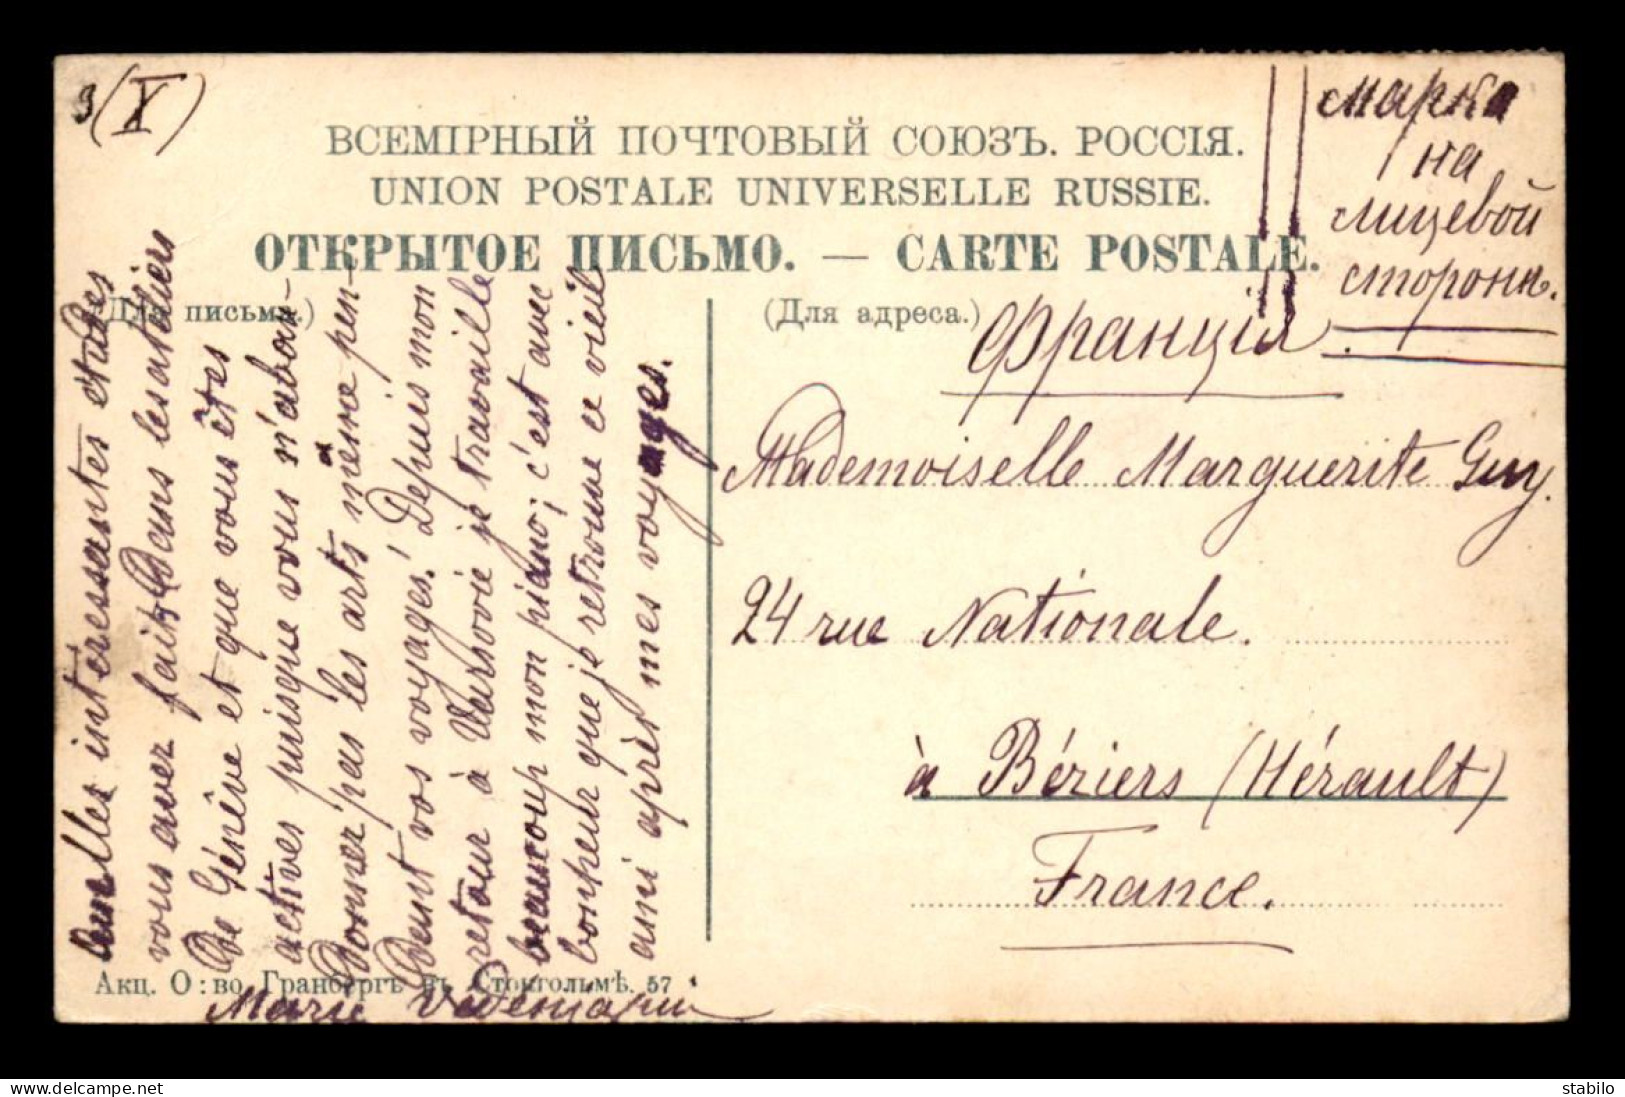 3 (X)
марка
на
лицевой
сторонѣ.
ВСЕМІРНЫЙ ПОЧТОВЫЙ СОЮЗЪ. РОССІЯ.
UNION POSTALE UNIVERSELLE RUSSIE.
ОТКРЫТОЕ ПИСЬМО. — CARTE POSTALE.
(Для письма.)
(Для адреса.)
Франція.
Mademoiselle Marguerite Guy.
24 rue Nationale.
à Béziers (Hérault)
France.
interessantes études
vous avez fait dans les ateliers
de Génêve et que vous êtes
actives puisque vous n'aban-
donnez pas les arts même pen-
dent vos voyages! Depuis mon
retour à Varsovie je travaille
beaucoup mon piano; c'est avec
bonheur que je retrouve ce vieil
ami après mes voyages.
Marie
Акц. О:во Гранбергъ въ Стокгольмѣ. 57
stabilo